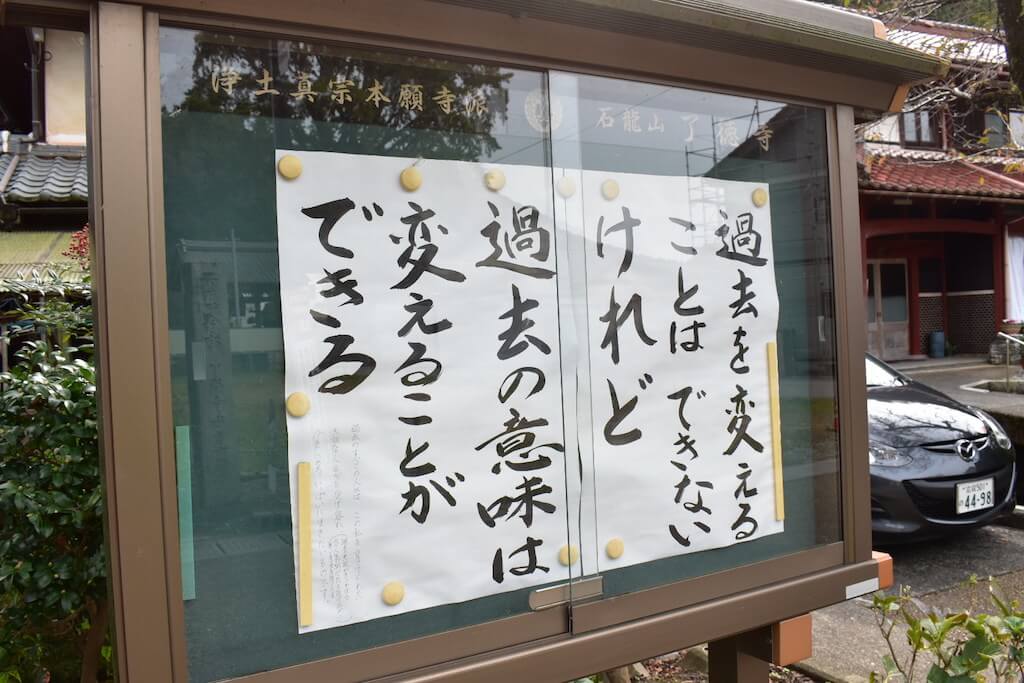 浄土真宗本願寺派
石龍山 了徳寺
過去を変える
ことは できない
けれど
過去の意味は
変えることが
できる
44-98